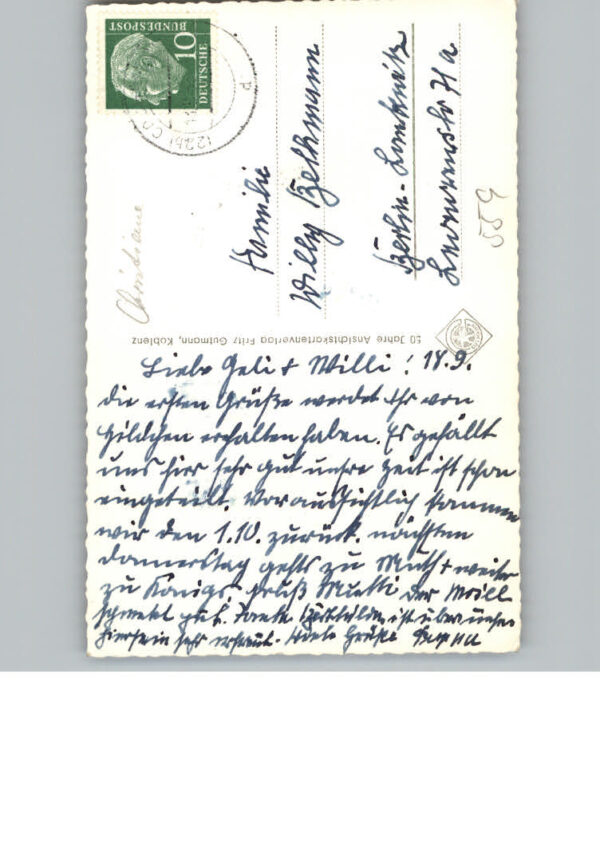 DEUTSCHE
BUNDESPOST
10
(22b) CO
Familie
Willy Bethmann
Berlin-Lankwitz
71a
559
Christiane
50 Jahre Ansichtskartenverlag Fritz Gutmann, Koblenz
Liebe Geli + Willi! 18.9.
die ersten Grüße werdet Ihr von
Hildchen erhalten haben. Es gefällt
uns hier sehr gut unsre Zeit ist schon
eingeteilt. Voraussichtlich kommen
wir den 1.10. zurück. nächsten
Donnerstag gehts zu Muth + weiter
zu Königs. Grüß Mutti der
schmeckt gut. Tante ist über unser
Hiersein sehr erfreut. Viele Grüße